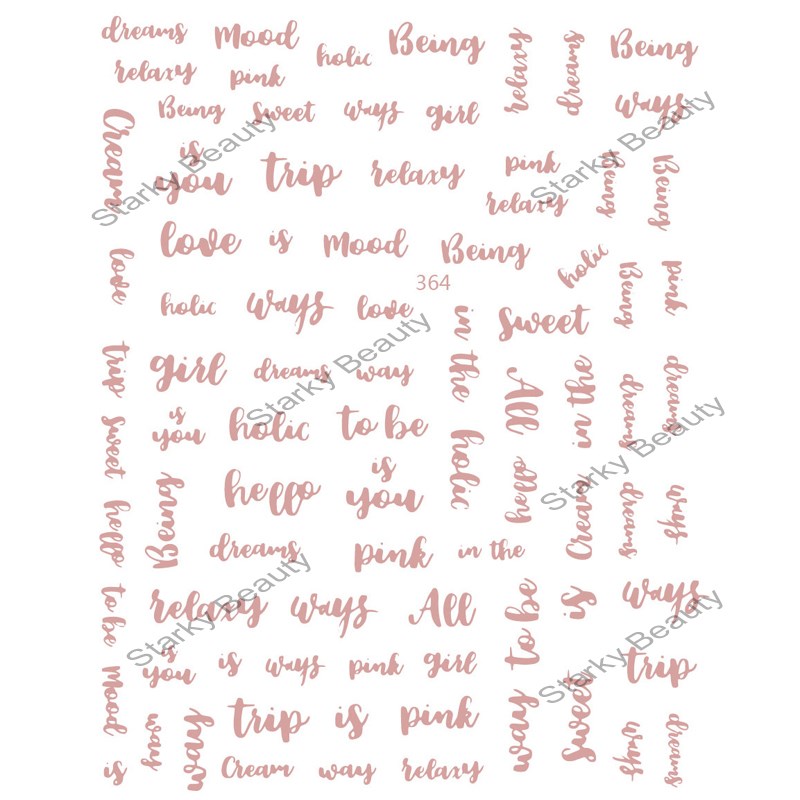 dreams Mood holic Being relaxy dreams Being
relaxy pink
Being Sweet ways girl ways
Cream
is
you trip relaxy pink Being Being
relaxy
love is Mood Being
love holic Being pink
364
holic ways love in the Sweet
trip girl dreams way All in the dreams dreams
is
you holic to be
sweet holic
hello is
you hello Cream dreams ways
hello Being
dreams pink in the
to be relaxy ways All to be is ways
is
you is ways pink girl
Mood sweet trip
way way trip is pink way
is Cream way relaxy ways dreams
Starky Beauty
Starky Beauty
Starky Beauty
Starky Beauty
Starky Beauty
Starky Beauty